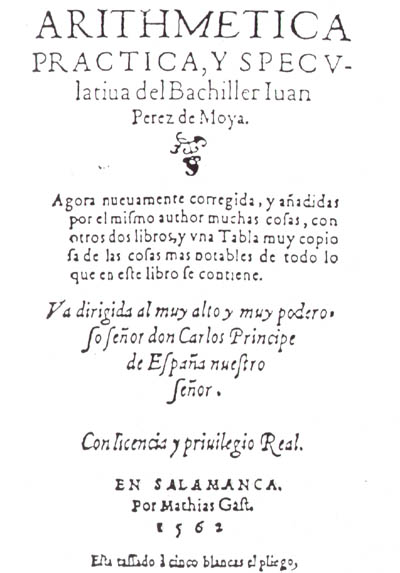 ARITHMETICA
PRACTICA, Y SPECV-
latiua del Bachiller Iuan
Perez de Moya.
Agora nueuamente corregida, y añadidas
por el miſmo author muchas coſas, con
otros dos libros, y vna Tabla muy copio
ſa de las coſas mas notables de todo lo
que en eſte libro ſe contiene.
Va dirigida al muy alto y muy podero-
ſo ſeñor don Carlos Principe
de Eſpaña nueſtro
ſeñor.
Con licencia y priuilegio Real.
EN SALAMANCA.
Por Mathias Gaſt.
1562
Eſta taſſado à cinco blancas el pliego,